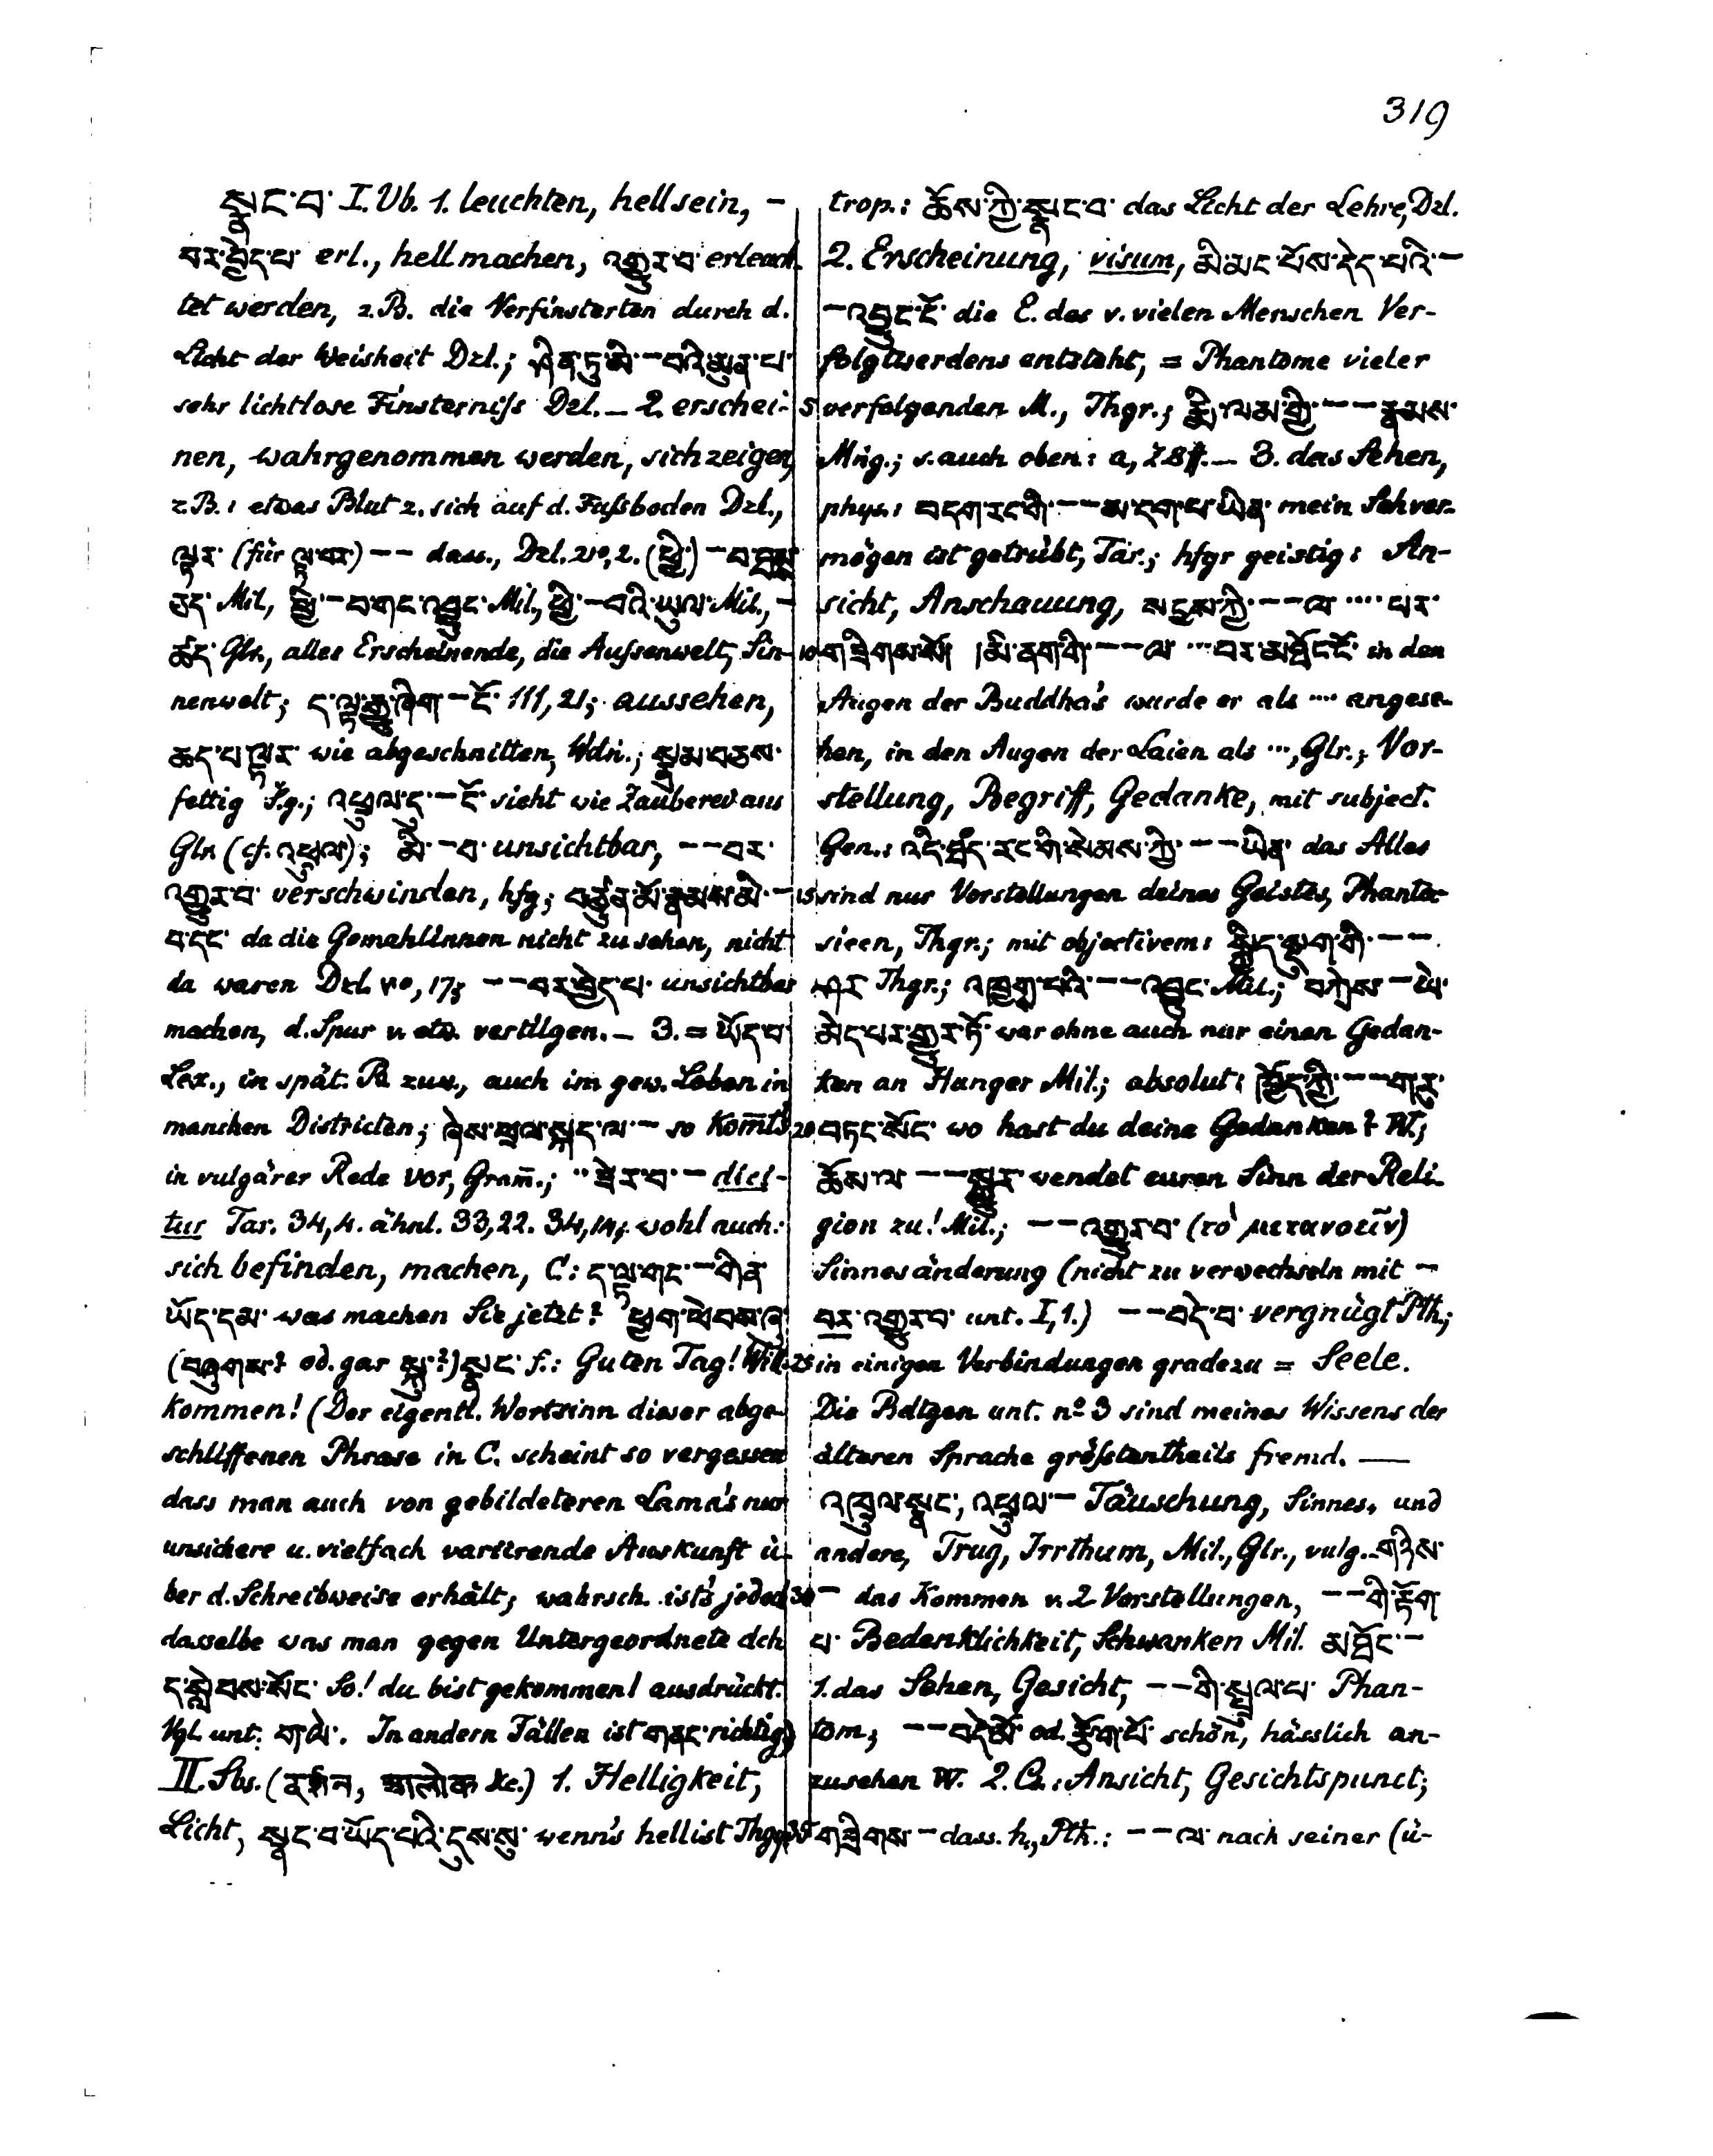 319
སྣང་བ་ I. Vb. 1. leuchten, hell sein, –
བར་བྱེད་པ་ erl., hell machen, འགྱུར་བ་ erleuch-
tet werden, z.B. die Verfinsterten durch d.
Licht der Weisheit Dzl.; ཤིན་ཏུ་མི་–བའི་མུན་པ་
sehr lichtlose Finsterniſs Dzl. – 2. erschei-
nen, wahrgenommen werden, sich zeigen,
z.B.: etwas Blut z. sich auf d. Fuſsboden Dzl.,
ལྟར་ (für ལྟ་བར་) –– dass., Dzl. 210, 2. (ཕྱི་) –བ་
Mil., ཕྱི་–བ་གང་འབྱུང་ Mil., ཕྱི་–བའི་ཡུལ་ Mil., –
ཚོད་ Glr., alles Erscheinende, die Auſsenwelt, Sin-
nenwelt; ད་ལྟ་རྒྱུ་ཞིག་–ངོ་ 111, 21; aussehen,
ཆད་པ་ལྟར་ wie abgeschnitten, Wdn.; སྣུམ་བཅས་
fettig S.g.; འཕྲུལ་དུ་–ངོ་ sieht wie Zauberei aus
Glr. (cf. འཕྲུལ་); མི་–བ་ unsichtbar, ––བར་
འགྱུར་བ་ verschwinden, hfg; བཙུན་མོ་རྣམས་མི་–
བ་དང་ da die Gemahlinnen nicht zu sehen, nicht
da waren Dzl. ༧༠, 17; ––བར་བྱེད་པ་ unsichtbar
machen, d. Spur v. etw. vertilgen. – 3. = ཡོད་པ་
Lex., in spät. B. zuw., auch im gew. Leben in
manchen Districten; ཞེས་ཕལ་སྐད་ལ་– so kom̄t's
in vulgärer Rede vor, Gram̄.; ·· ཟེར་བ་– dici-
tur Tar. 34, 4. ähnl. 33, 22. 34, 14; wohl auch:
sich befinden, machen, C: ད་ལྟ་གང་–གིན་
ཡོད་དམ་ was machen Sie jetzt? ཕྱག་ཕེབས་
(བཞུགས་? od. gar སྐུ་?) སྣང་ f.: Guten Tag! Wil-
kommen! (Der eigentl. Wortsinn dieser abge-
schliffenen Phrase in C. scheint so vergessen
dass man auch von gebildeteren Lama's nur
unsichere u. vielfach variirende Auskunft ü-
ber d. Schreibweise erhält; wahrsch. ist's jedoch
dasselbe was man gegen Untergeordnete dch
ད་སླེབས་སོང་ So! du bist gekommen! ausdrückt.
Vgl. unt. ག་ལེ་. In andern Fällen ist གནང་ richtig)
II. Sbs. (दर्शन, आलोक &c.) 1. Helligkeit,
Licht, སྣང་བ་ཡོད་པའི་དུས་སུ་ wenn's hell ist Thgy.
trop.: ཆོས་ཀྱི་སྣང་བ་ das Licht der Lehre, Dzl.
2. Erscheinung, visum, མི་མང་པོས་དེད་པའི་–
–འབྱུང་ངོ་ die E. des v. vielen Menschen Ver-
folgtwerdens entsteht, = Phantome vieler
5 verfolgenden M., Thgr.; རྨི་ལམ་གྱི་––རྣམས་
Mng.; s. auch oben: a, Z. 8 ff. – 3. das Sehen,
phys.: བདག་རང་གི་––མ་དག་པ་ཡིན་ mein Sehver-
mögen ist getrübt, Tar.; hfgr geistig: An-
sicht, Anschauung, སངས་ཀྱི་––ལ་ ···· པར་
10 གཟིགས་སོ། །མི་ནག་གི་––ལ་ ···བར་མཐོང་ངོ་ in den
Augen der Buddha's wurde er als ···· angese-
hen, in den Augen der Laien als ···, Glr.; Vor-
stellung, Begriff, Gedanke, mit subject.
Gen.: འདི་ཁྱོད་རང་གི་སེམས་ཀྱི་––ཡིན་ das Alles
15 sind nur Vorstellungen deines Geistes, Phanta-
sieen, Thgr.; mit objectivem: སྡུག་གི་––
ཤར་ Thgr.; འཁྲུག་པའི་––འབྱུང་ Mil.; བཀྲེས་–ཡེ་
མེད་པར་གྱུར་ཏོ་ war ohne auch nur einen Gedan-
ken an Hunger Mil.; absolut: ཁྱོད་ཀྱི་––གར་
20 བཏང་སོང་ wo hast du deine Gedanken? W.;
ཆོས་ལ་––སྒྱུར་ wendet euren Sinn der Reli-
gion zu! Mil.; ––འགྱུར་བ་ (τὸ μετανοεῖν)
Sinnesänderung (nicht zu verwechseln mit –
བར་འགྱུར་བ་ unt. I, 1.) ––བདེ་བ་ vergnügt Pth.;
25 in einigen Verbindungen gradezu = Seele.
Die Bdtgen unt. nº 3 sind meines Wissens der
älteren Sprache gröſstentheils fremd. —
འཁྲུལ་སྣང་, འཕྲུལ་– Täuschung, Sinnes- und
andere, Trug, Irrthum, Mil., Glr., vulg. – གཉིས་
30 – das Kommen v. 2 Vorstellungen, ––གི་རྟོག་
པ་ Bedenklichkeit, Schwanken Mil. མཐོང་–
1. das Sehen, Gesicht, ––གི་སྤྲུལ་པ་ Phan-
tom, ––བདེ་མོ་ od. རྩོག་པོ་ schön, hässlich an-
zusehen W. 2. Cs.: Ansicht, Gesichtspunct;
35 གཟིགས་– dass. h., Pth.: ––ལ་ nach seiner (ü-